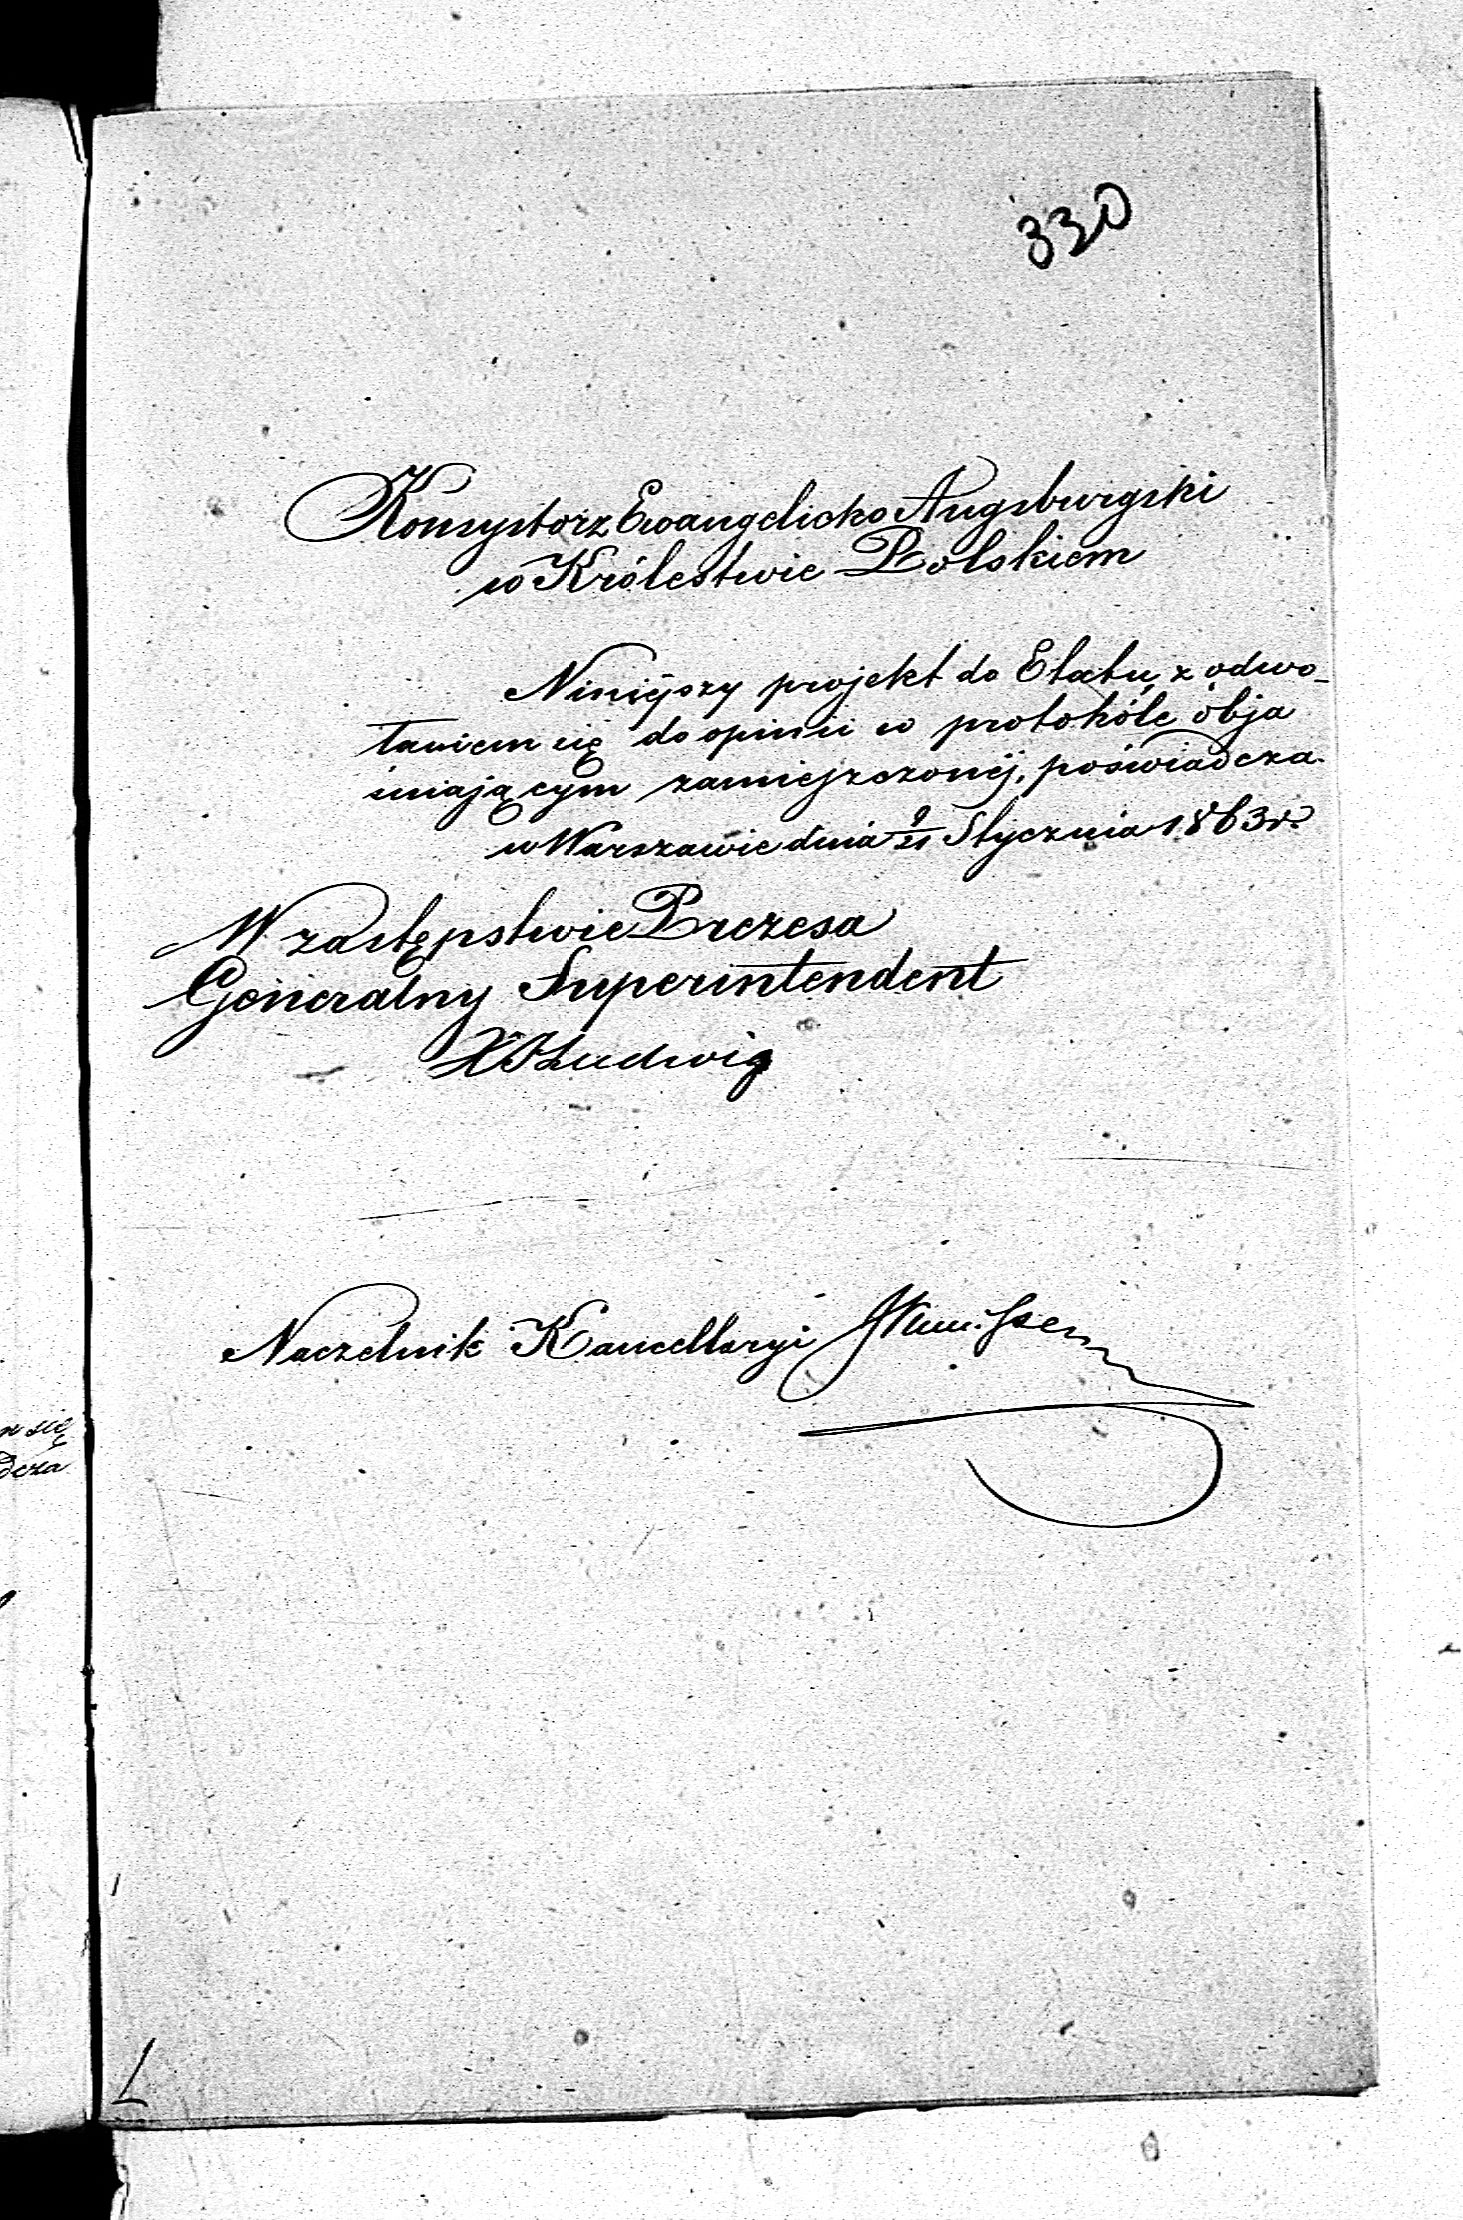 330
Konsystorz Ewangelicko Augsburgski
w Królestwie Polskiem
Niniéjszy projekt do Etatu, z odwo-
łaniem się do opinii w protokóle obja
śniającym zamiejszczonéj, poświadcza.
w Warszawie dnia 9/21 Stycznia 1863 r.
W zastępstwie Prezesa
Generalny Superintendent
X J Ludwig
Naczelnik Kancellaryi
się
dcza